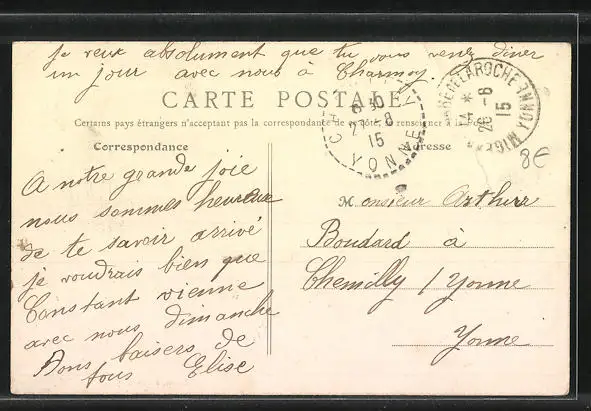 je veux absolument que tu vous venez diner
un jour avec nous à Charmoy.
CARTE POSTALE
Certains pays étrangers n'acceptent pas la correspondance de ce côté, se renseigner à la
Correspondance
Adresse
A notre grande joie
nous sommes heureux
de te savoir arrivé
je voudrais bien que
Constant vienne
avec nous dimanche
Bons baisers de
tous Elise
Monsieur Arthur
Boudard à
Chemilly / Yonne
Yonne
8 30
27 -8
15
YONNE
DE LAROCHE
YONNE
14 *
26 -8
15
8€